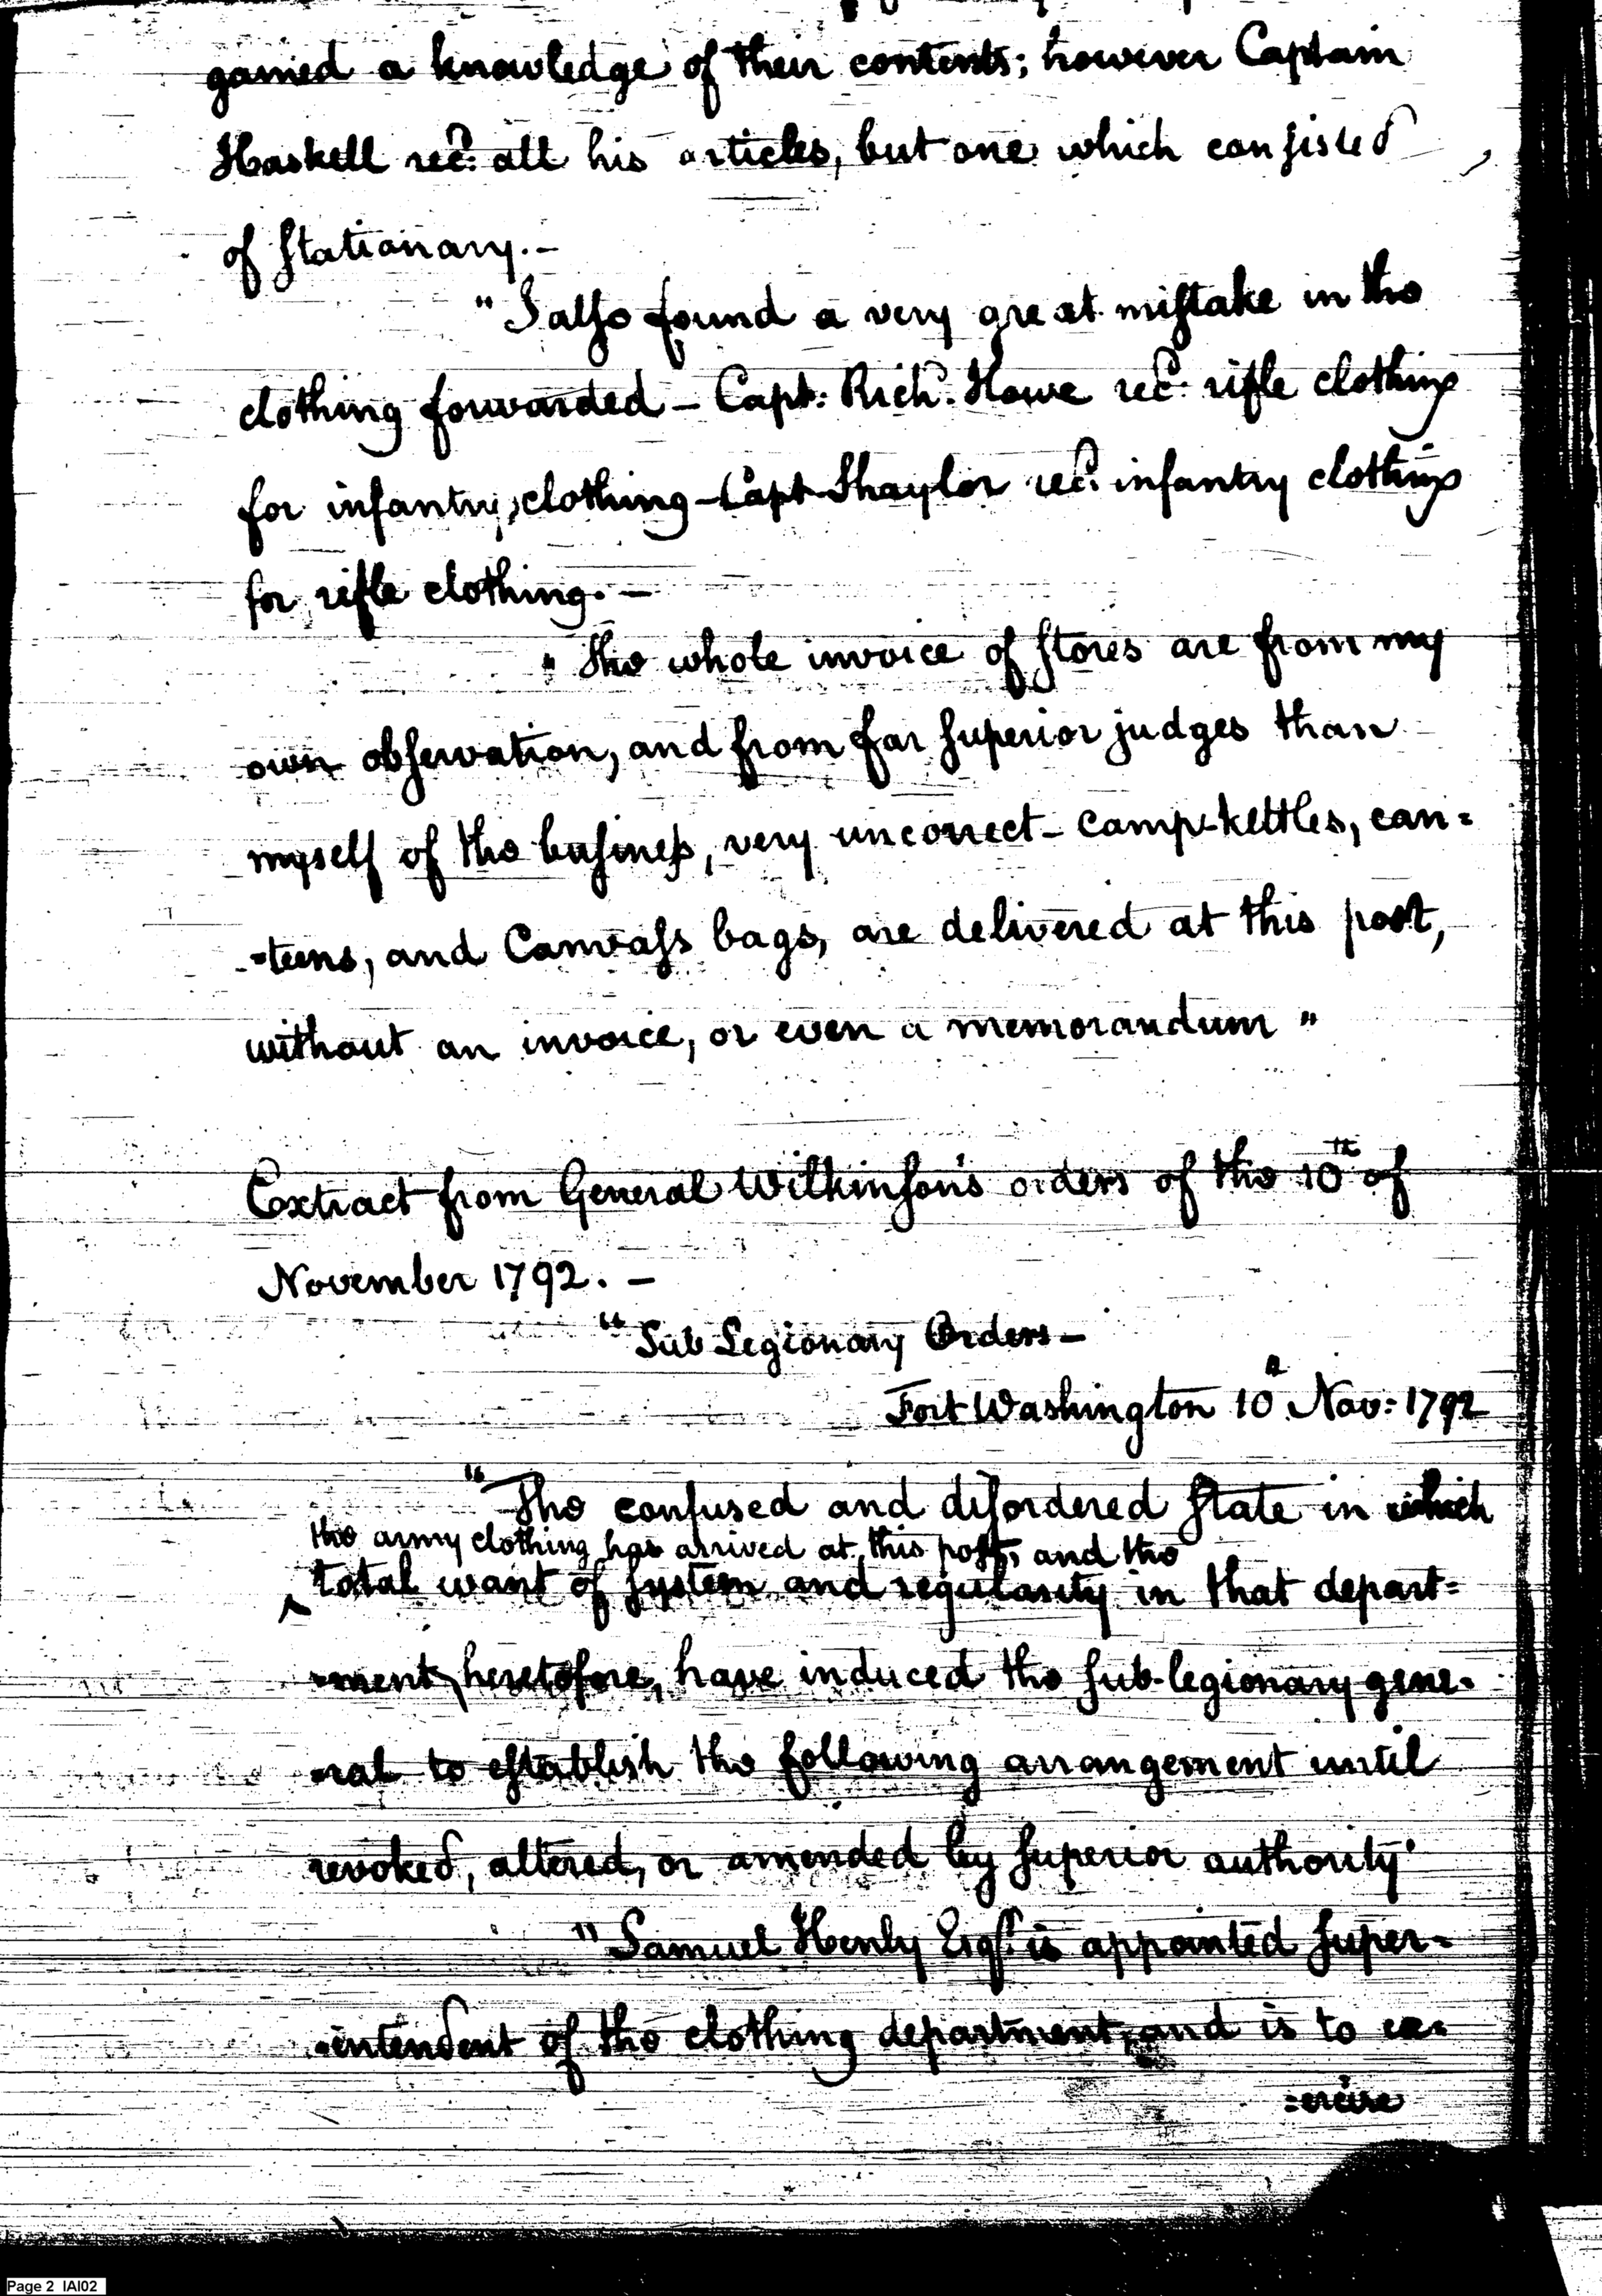 gained a knowledge of their contents; however Captain
Haskell rec.d all his articles, but one which consisted
of Stationary.-
"I also found a very great mistake in the
clothing forwarded - Capt: Rich.d Howe rec.d rifle clothing
for infantry clothing - Capt Shaylor rec.d infantry clothing
for rifle clothing. -
"The whole invoice of stores are from my
own observation, and from far superior judges than
myself of the business, very uncorrect - camp-kettles, can=
=teens, and Canvass bags, are delivered at this post,
without an invoice, or even a memorandum"
Extract from General Wilkinson's orders of the 10th of
November 1792. -
"Sub Legionary Orders -
Fort Washington 10th Nov: 1792
"The confused and disordered state in which
the army clothing has arrived at this post, and the
total want of system and regularity in that depart=
=ment, heretofore, have induced the sub-legionary gene=
=ral to establish the following arrangement until
revoked, altered, or amended by superior authority.
"Samuel Henly Esq.r is appointed super=
=intendent of the clothing department, and is to ex=
=ercise
Page 2 IAI02